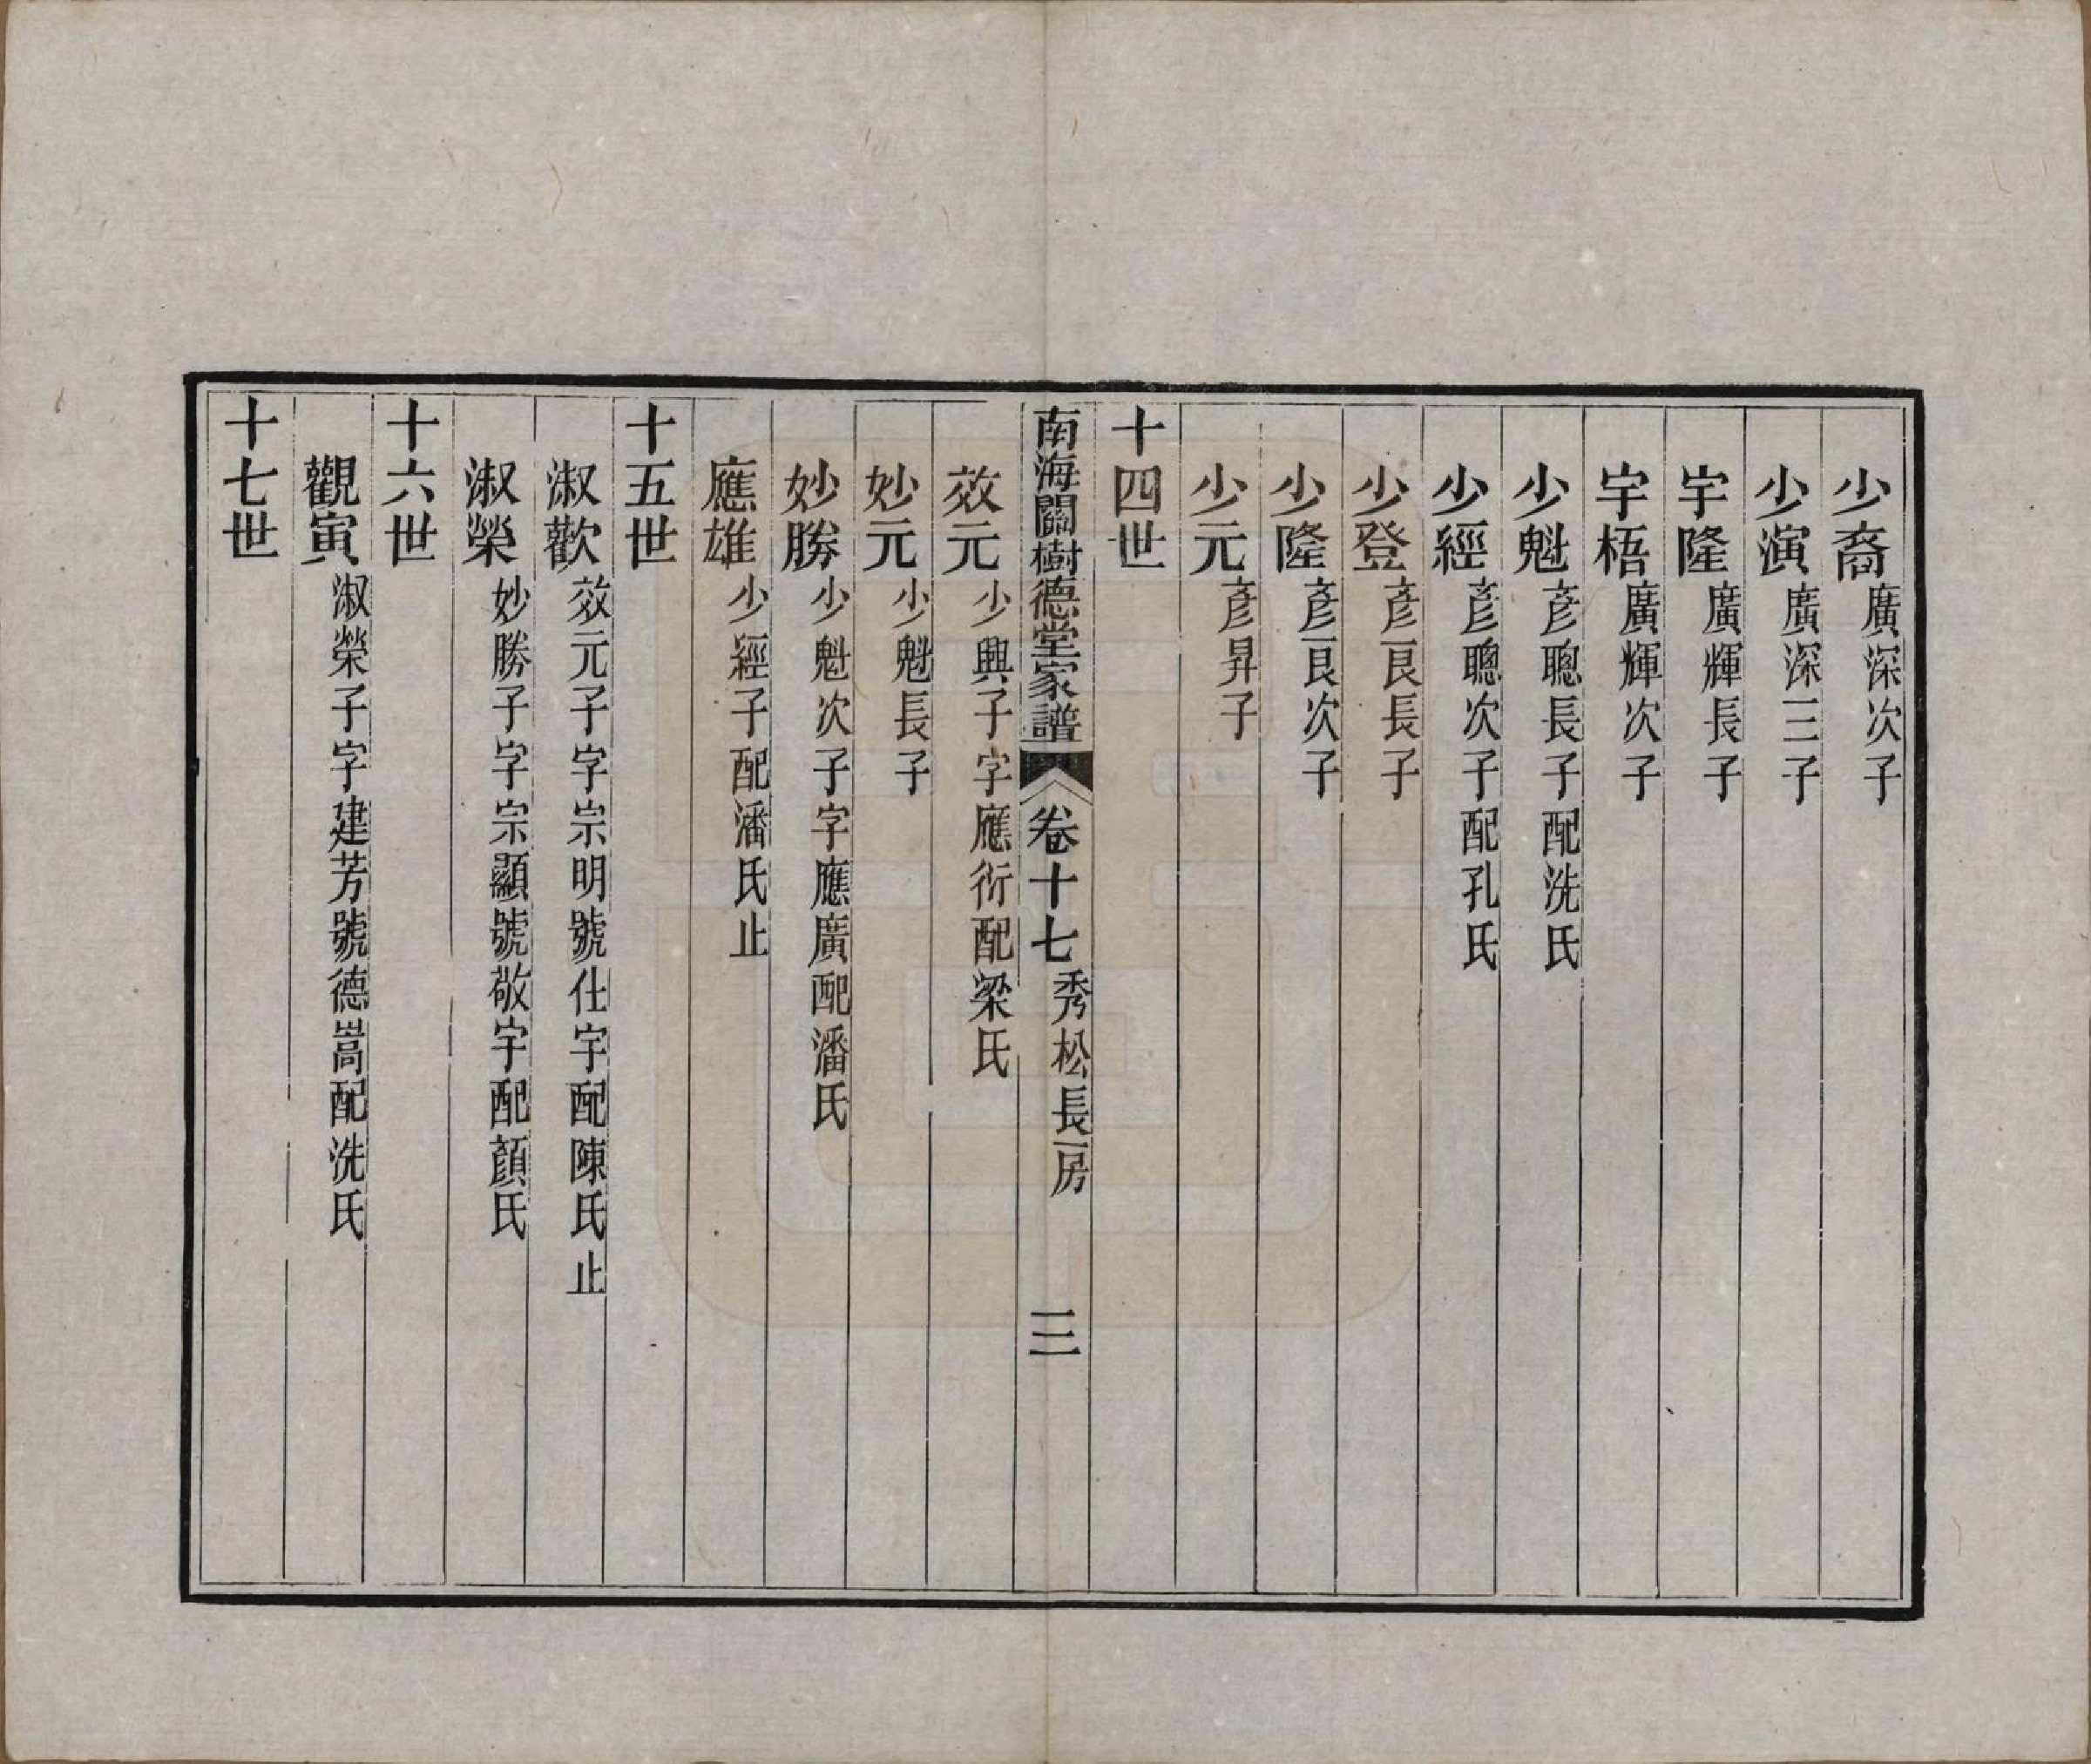 少裔廣深次子
少演廣深三子
宇隆廣輝長子
宇梧廣輝次子
少魁彥聰長子配冼氏
少經彥聰次子配孔氏
少登彥艮長子
少隆彥艮次子
少元彥昇子
十四世
南海關樹德堂家譜 卷十七秀松長房 三
效元少興子字應衍配梁氏
妙元少魁長子
妙勝少魁次子字應廣配潘氏
應雄少經子配潘氏止
十五世
淑歡效元子字宗明號仕宇配陳氏止
淑榮妙勝子字宗顯號敬宇配顔氏
十六世
觀寅淑榮子字建芳號德嵩配冼氏
十七世